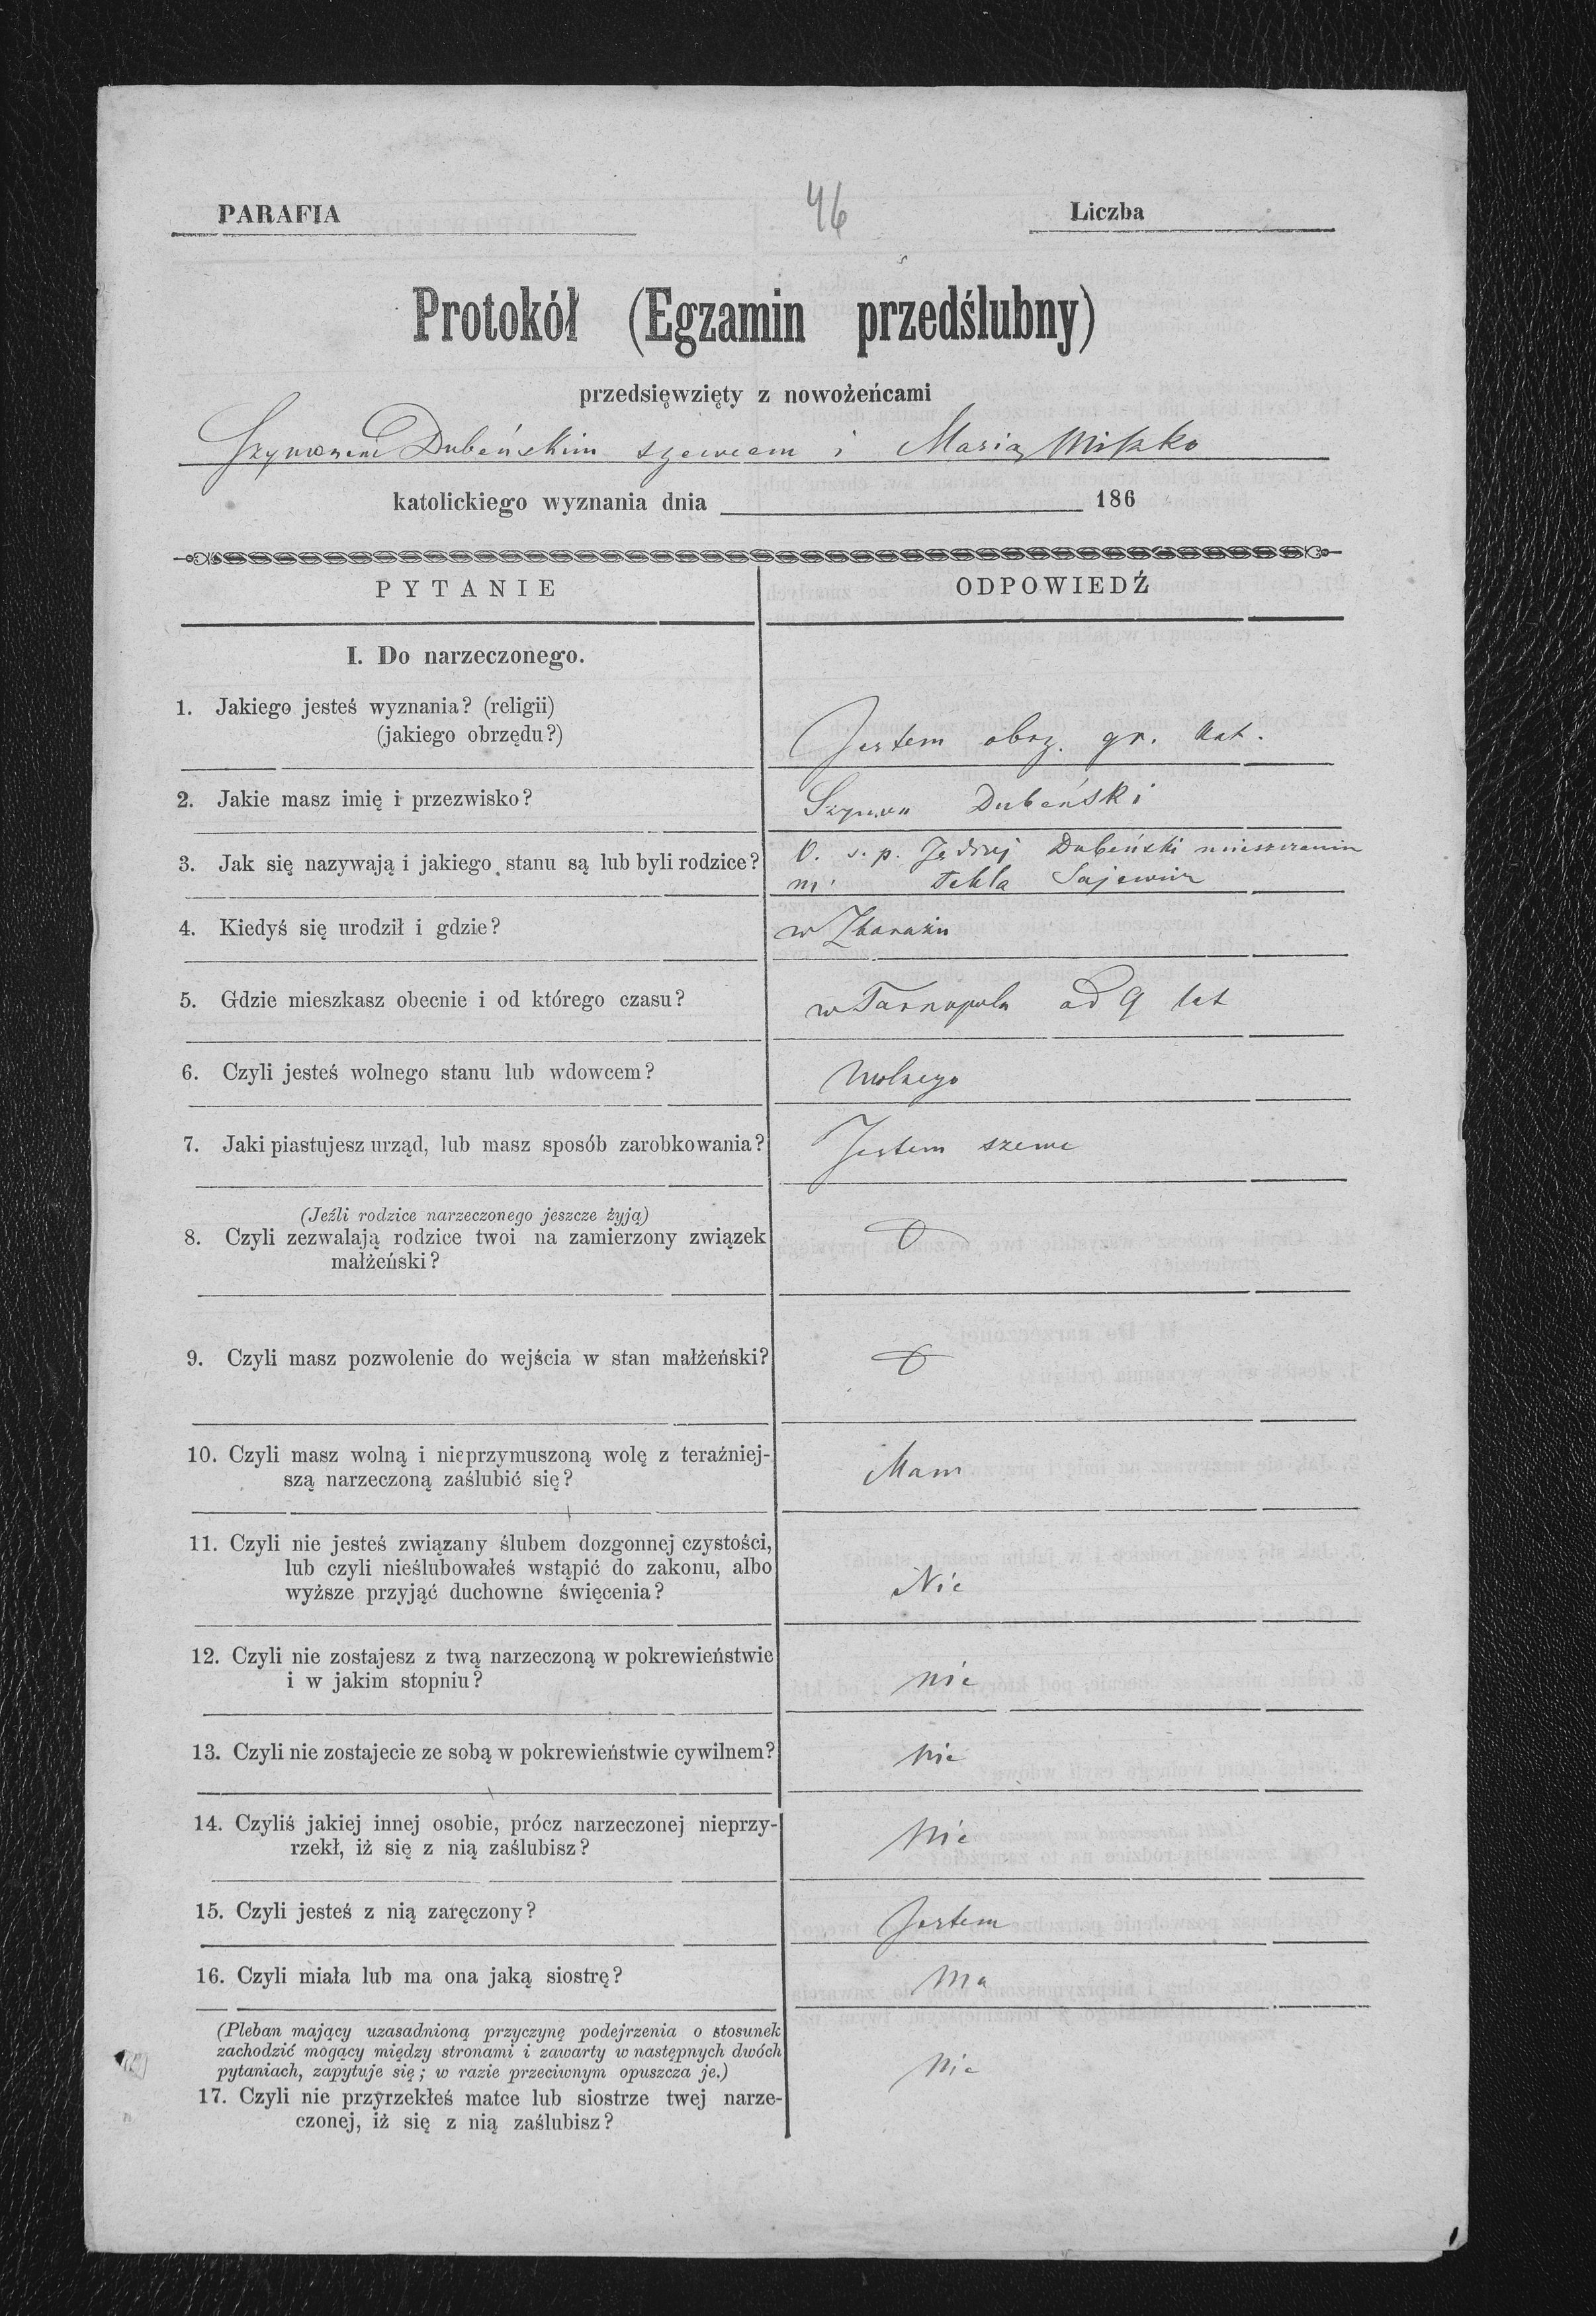 PARAFIA 46 Liczba
Protokół (Egzamin przedślubny)
przedsięwzięty z nowożeńcami
Szymonem Dubeńskim szewcem i Marią Miszko
katolickiego wyznania dnia 186
PYTANIE ODPOWIEDŹ
I. Do narzeczonego.
1. Jakiego jesteś wyznania? (religii)
(jakiego obrzędu?) Jestem obrz. gr. kat.
2. Jakie masz imię i przezwisko? Szymon Dubeński
3. Jak się nazywają i jakiego stanu są lub byli rodzice? O. ś. p. Jędrzej Dubeński mieszczanin
m. Tekla Sajewicz
4. Kiedyś się urodził i gdzie? w Zbarażu
5. Gdzie mieszkasz obecnie i od którego czasu? w Tarnopolu od 9 lat
6. Czyli jesteś wolnego stanu lub wdowcem? Wolnego
7. Jaki piastujesz urząd, lub masz sposób zarobkowania? Jestem szewc
(Jeźli rodzice narzeczonego jeszcze żyją)
8. Czyli zezwalają rodzice twoi na zamierzony związek
małżeński?
9. Czyli masz pozwolenie do wejścia w stan małżeński?
10. Czyli masz wolną i nieprzymuszoną wolę z teraźniej-
szą narzeczoną zaślubić się? Mam
11. Czyli nie jesteś związany ślubem dozgonnej czystości,
lub czyli nieślubowałeś wstąpić do zakonu, albo
wyższe przyjąć duchowne święcenia? Nie
12. Czyli nie zostajesz z twą narzeczoną w pokrewieństwie
i w jakim stopniu? nie
13. Czyli nie zostajecie ze sobą w pokrewieństwie cywilnem? nie
14. Czyliś jakiej innej osobie, prócz narzeczonej nieprzy-
rzekł, iż się z nią zaślubisz? Nie
15. Czyli jesteś z nią zaręczony? Jestem
16. Czyli miała lub ma ona jaką siostrę? Ma
(Pleban mający uzasadnioną przyczynę podejrzenia o stosunek
zachodzić mogący między stronami i zawarty w następnych dwóch
pytaniach, zapytuje się; w razie przeciwnym opuszcza je.) Nie
17. Czyli nie przyrzekłeś matce lub siostrze twej narze-
czonej, iż się z nią zaślubisz?